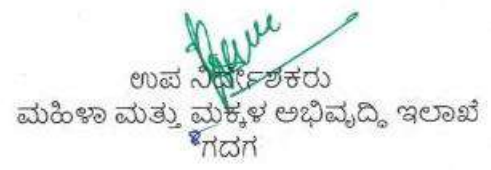 ಉಪ ನಿರ್ದೇಶಕರು
ಮಹಿಳಾ ಮತ್ತು ಮಕ್ಕಳ ಅಭಿವೃದ್ದಿ ಇಲಾಖೆ
ಗದಗ